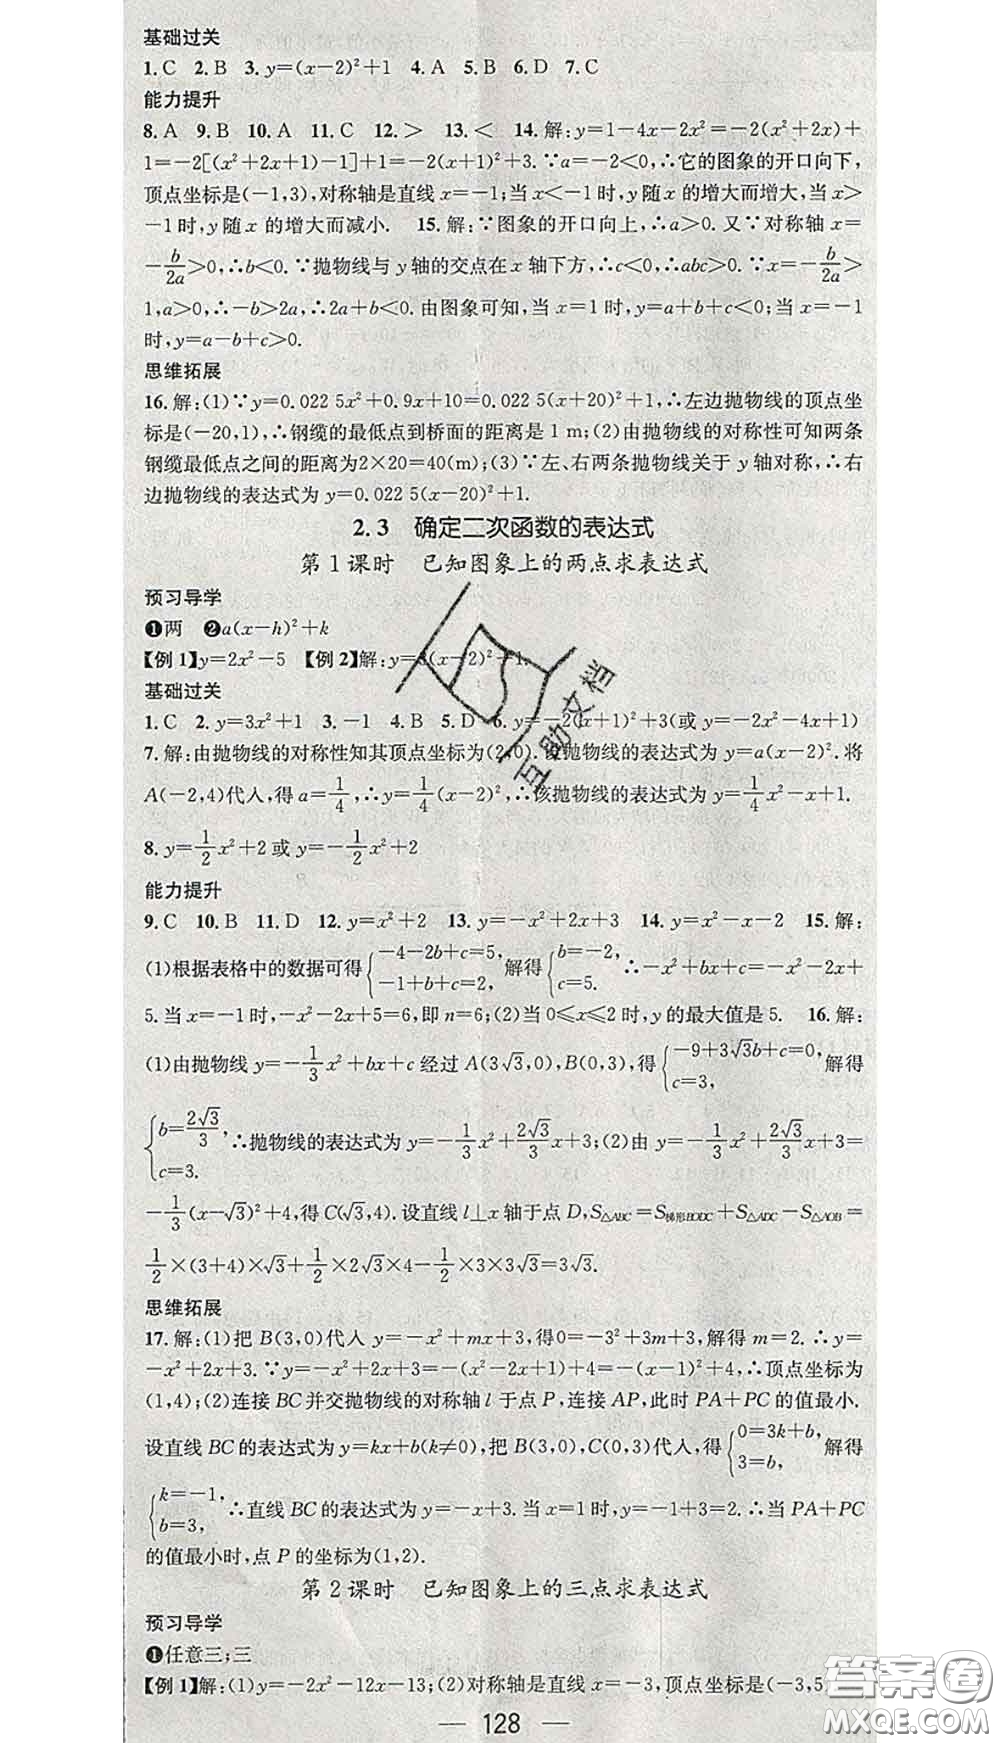 基础过关
1. C 2. B 3. y=(x-2)²+1 4. A 5. B 6. D 7. C
能力提升
8. A 9. B 10. A 11. C 12. > 13. < 14. 解:y=1-4x-2x²=-2(x²+2x)+
1=-2[(x²+2x+1)-1]+1=-2(x+1)²+3.∵a=-2<0,∴它的图象的开口向下,
顶点坐标是(-1,3),对称轴是直线 x=-1;当 x<-1 时,y 随 x 的增大而增大,当 x>
-1 时,y 随 x 的增大而减小. 15. 解:∵图象的开口向上,∴a>0.又∵对称轴 x=
-b/2a>0,∴b<0.∵抛物线与 y 轴的交点在 x 轴下方,∴c<0,∴abc>0.∵x=-b/2a>
1,a>0,∴-b>2a,∴2a+b<0.由图象可知,当 x=1 时,y=a+b+c<0;当 x=-1
时,y=a-b+c>0.
思维拓展
16. 解:(1)∵y=0.022 5x²+0.9x+10=0.022 5(x+20)²+1,∴左边抛物线的顶点坐
标是(-20,1),∴钢缆的最低点到桥面的距离是 1 m;(2)由抛物线的对称性可知两条
钢缆最低点之间的距离为2×20=40(m);(3)∵左、右两条抛物线关于 y 轴对称,∴右
边抛物线的表达式为 y=0.022 5(x-20)²+1.
2.3 确定二次函数的表达式
第 1 课时 已知图象上的两点求表达式
预习导学
❶两 ❷a(x-h)²+k
【例 1】y=2x²-5 【例 2】解:y=3(x-2)²-1.
基础过关
1. C 2. y=3x²+1 3. -1 4. B 5. D 6. y=-2(x+1)²+3(或 y=-2x²-4x+1)
7. 解:由抛物线的对称性知其顶点坐标为(2,0).设抛物线的表达式为 y=a(x-2)².将
A(-2,4)代入,得 a=1/4,∴y=1/4(x-2)²,∴该抛物线的表达式为 y=1/4x²-x+1.
8. y=1/2x²+2 或 y=-1/2x²+2
能力提升
9. C 10. B 11. D 12. y=x²+2 13. y=-x²+2x+3 14. y=x²-x-2 15. 解:
(1)根据表格中的数据可得{-4-2b+c=5, -1+b+c=2, 解得{b=-2, c=5. ∴-x²+bx+c=-x²-2x+
5.当 x=-1 时,-x²-2x+5=6,即 n=6;(2)当 0≤x≤2 时,y 的最大值是 5. 16. 解:
(1)由抛物线 y=-1/3x²+bx+c 经过 A(3√3,0),B(0,3),得{-9+3√3b+c=0, c=3, 解得
{b=2√3/3, c=3. ∴抛物线的表达式为 y=-1/3x²+2√3/3x+3;(2)由 y=-1/3x²+2√3/3x+3=
-1/3(x-√3)²+4,得 C(√3,4).设直线 l⊥x 轴于点 D,S△ABC=S梯形BODC+S△ADC-S△AOB=
1/2×(3+4)×√3+1/2×2√3×4-1/2×3×3√3=3√3.
思维拓展
17. 解:(1)把 B(3,0)代入 y=-x²+mx+3,得0=-3²+3m+3,解得 m=2.∴y=
-x²+2x+3.∵y=-x²+2x+3=-(x²-2x+1)+4=-(x-1)²+4,∴顶点坐标为
(1,4);(2)连接 BC 并交抛物线的对称轴 l 于点 P,连接 AP,此时 PA+PC 的值最小.
设直线 BC 的表达式为 y=kx+b(k≠0),把 B(3,0),C(0,3)代入,得{0=3k+b, 3=b, 解得
{k=-1, b=3, ∴直线 BC 的表达式为 y=-x+3.当 x=1 时,y=-1+3=2.∴当 PA+PC
的值最小时,点 P 的坐标为(1,2).
第 2 课时 已知图象上的三点求表达式
预习导学
❶任意三;三
【例 1】解:(1)y=-2x²-12x-13;(2)对称轴是直线 x=-3,顶点坐标是(-3,5
— 128 —
互助文档
答案圈
MXQE.COM